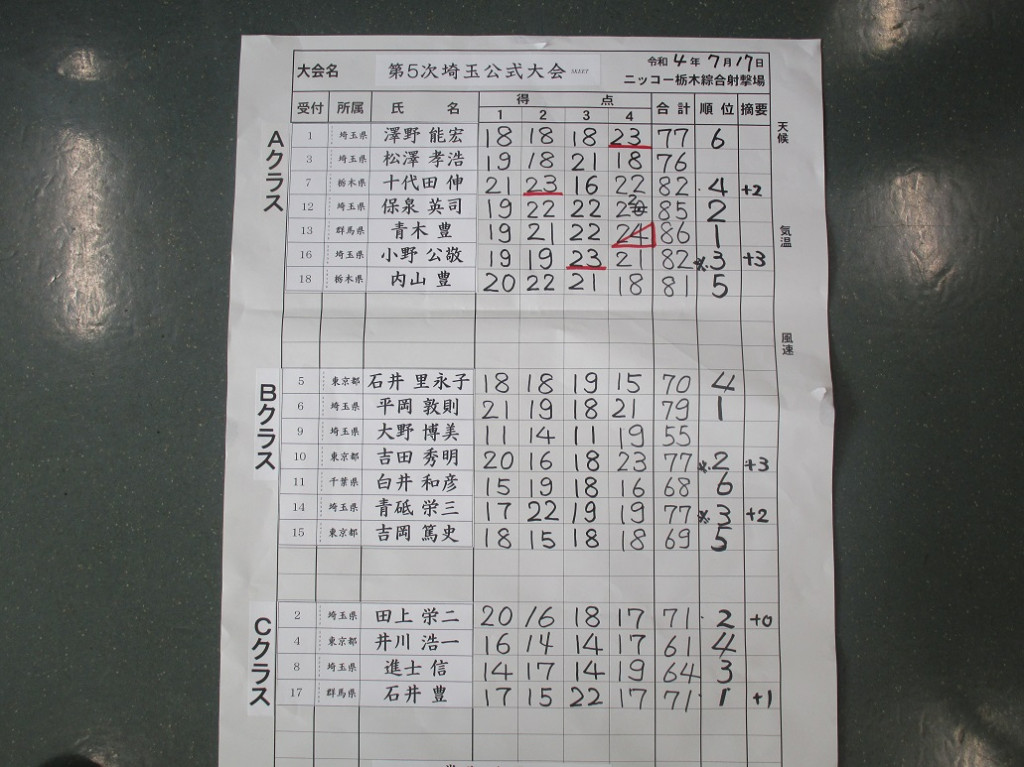 大会名 第5次埼玉公式大会 SKEET 令和 4 年 7 月 17 日
ニッコー栃木綜合射撃場
受付 所属 氏 名 得 点 合計 順位 摘要
1 2 3 4
天候
Aクラス
1 埼玉県 澤野 能宏 18 18 18 23 77 6
3 埼玉県 松澤 孝浩 19 18 21 18 76
7 栃木県 十代田 伸 21 23 16 22 82 4 +2
12 埼玉県 保泉 英司 19 22 22 22 85 2
13 群馬県 青木 豊 19 21 22 24 86 1
気温
16 埼玉県 小野 公敬 19 19 23 21 82 ※3 +3
18 栃木県 内山 豊 20 22 21 18 81 5
風速
Bクラス
5 東京都 石井 里永子 18 18 19 15 70 4
6 埼玉県 平岡 敦則 21 19 18 21 79 1
9 埼玉県 大野 博美 11 14 11 19 55
10 東京都 吉田 秀明 20 16 18 23 77 ※2 +3
11 千葉県 白井 和彦 15 19 18 16 68 6
14 埼玉県 青砥 栄三 17 22 19 19 77 ※3 +2
15 東京都 吉岡 篤史 18 15 18 18 69 5
Cクラス
2 埼玉県 田上 栄二 20 16 18 17 71 2 +0
4 東京都 井川 浩一 16 14 14 17 61 4
8 埼玉県 進士 信 14 17 14 19 64 3
17 群馬県 石井 豊 17 15 22 17 71 1 +1